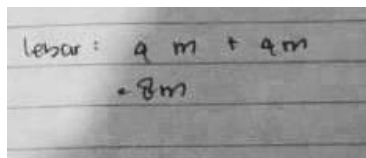 lebar : 4 m + 4m
= 8m